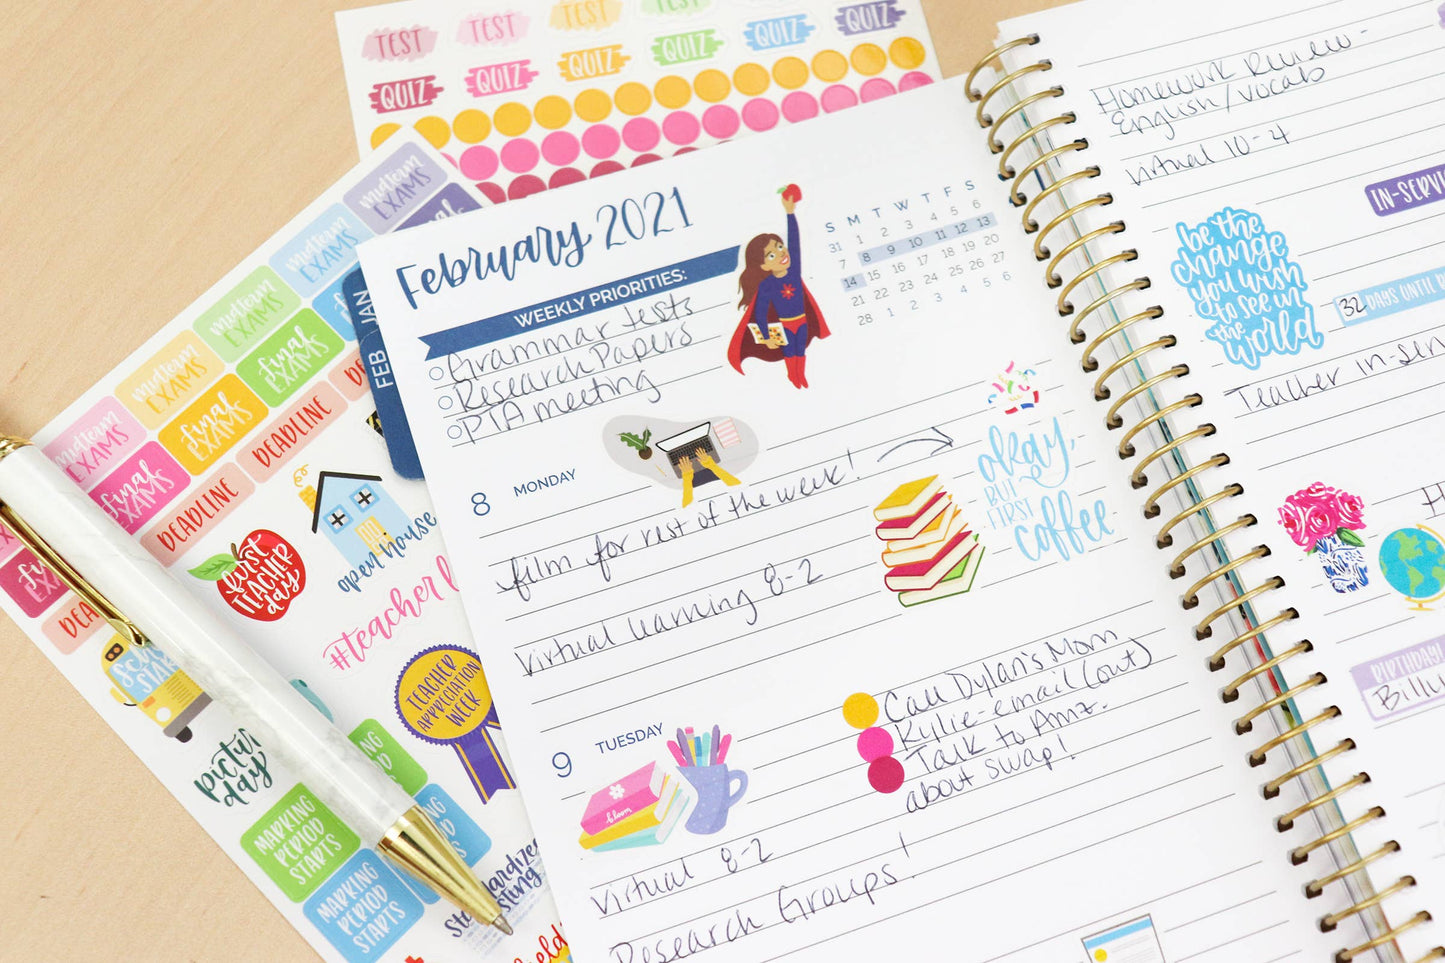 TEST
TEST
TEST
TEST
QUIZ
QUIZ
QUIZ
QUIZ
QUIZ
QUIZ
midterm
EXAMS
midterm
EXAMS
midterm
EXAMS
midterm
EXAMS
midterm
EXAMS
final
EXAMS
final
EXAMS
final
EXAMS
DEADLINE
DEADLINE
first
TEACHER
day
open house
#teacher
TEACHER
APPRECIATION
WEEK
picture
day
MARKING
PERIOD
STARTS
MARKING
PERIOD
STARTS
JAN
FEB
February 2021
WEEKLY PRIORITIES:
Grammar tests
Research Papers
PTA meeting
S M T W T F S
31 1 2 3 4 5 6
7 8 9 10 11 12 13
14 15 16 17 18 19 20
21 22 23 24 25 26 27
28 1 2 3 4 5 6
8 MONDAY
film for rest of the week!
virtual learning 8-2
okay,
BUT
FIRST
coffee
9 TUESDAY
bloom
Call Dylan's Mom
Kylie-email (out)
Talk to Amz.
about swap!
virtual 8-2
Research Groups!
Homework Review-
English/Vocab
virtual 10-4
IN-SERVI
be the
change
you wish
to see in
the
world
32 DAYS UNTIL
Teacher in-ser
H
BIRTHDAY
Billy